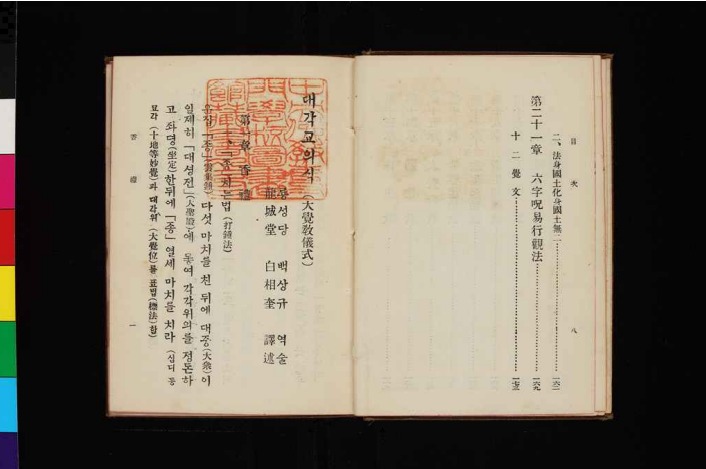 目次 八
二、法身國土化身國土無二
第二十一章 六字呪易行觀法
十二覺文
대각교의식 (大覺敎儀式)
룡성당 백상규 역술
龍城堂 白相奎 譯述
第一章 香禮
一、「종」치는법 (打鍾法)
다섯 마치를 친 뒤에 대중(大衆)이
일제히 「대성전」(大聖殿)에 각각위의를 정돈하
고 좌뎡(坐定)한뒤에 「종」열세 마치를 치라
묘각 (十地等妙覺)과 대각위 (大覺位)를 표법(標法)함)
香禮 一